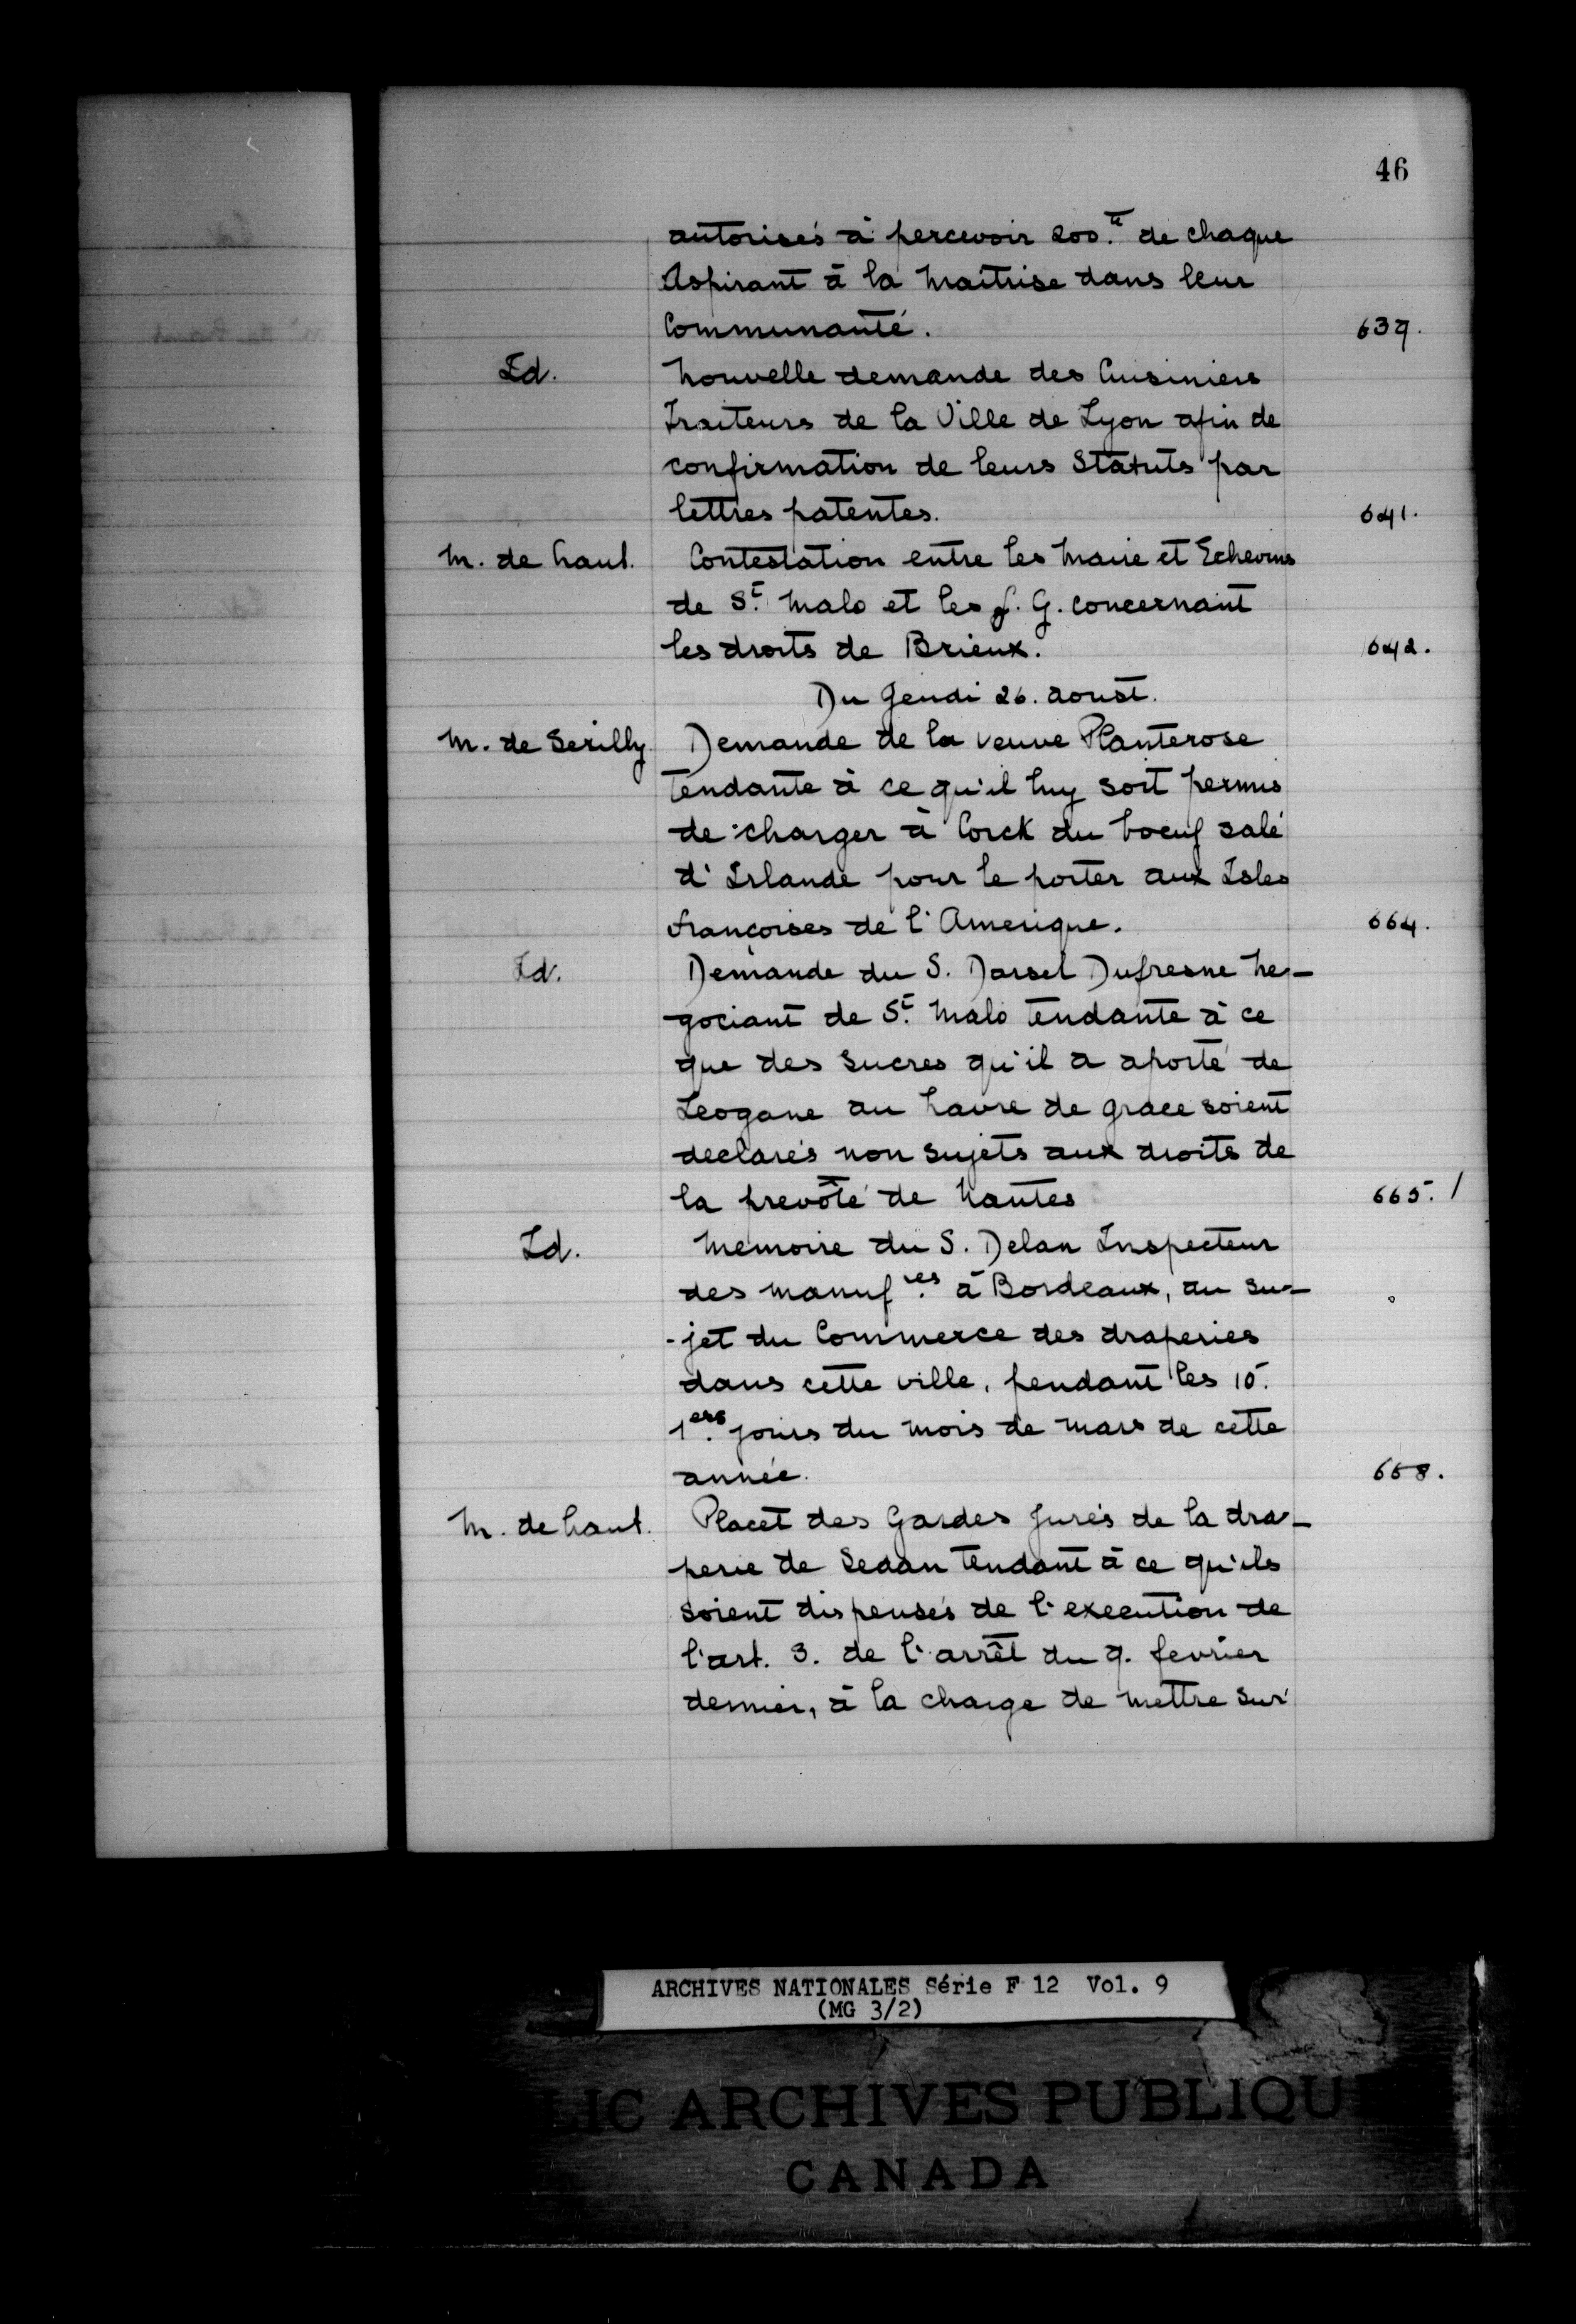 46
autorisés à percevoir 200.tt de chaque
Aspirant à la Maitrise dans leur
Communauté. 639.
Id. Nouvelle demande des Cuisiniers
Traiteurs de la Ville de Lyon afin de
confirmation de leurs Statuts par
lettres patentes. 641.
M. de haut. Contestation entre les Maire et Echevins
de St. Malo et les f. G. concernant
les droits de Brieux. 642.
Du Jeudi 26. aoust.
M. de Serilly. Demande de la veuve Planterose
tendante à ce qu'il luy soit permis
de charger à Corck du boeuf salé
d'Irlande pour le porter aux Isles
françoises de l'Amerique. 664.
Id. Demande du S. Darsel Dufresne Ne-
gociant de St. Malo tendante à ce
que des sucres qu'il a aporté de
Leogane au havre de grace soient
declarés non sujets aux droits de
la prevôté de Nantes 665. /
Id. Memoire du S. Delan Inspecteur
des manuf.res à Bordeaux, au su-
-jet du Commerce des draperies
dans cette ville, pendant les 15.
1ers. jours du mois de mars de cette
année. 668.
M. de haut. Placet des Gardes Jurés de la dra-
perie de Sedan tendant à ce qu'ils
soient dispensés de l'execution de
l'art. 3. de l'arrêt du 9. fevrier
dernier, à la charge de mettre sur
ARCHIVES NATIONALES Série F 12 Vol. 9
(MG 3/2)
LIC ARCHIVES PUBLIQU
CANADA